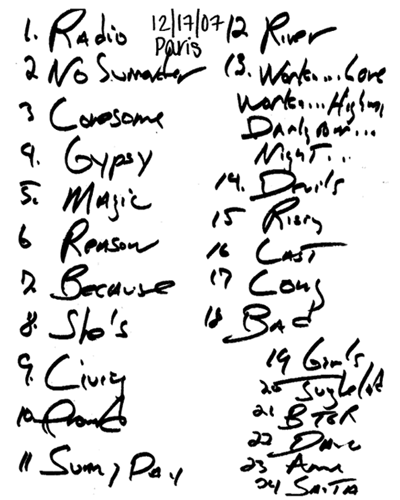 12/17/07
Paris
1. Radio
2 No Surrender
3 Lonesome
4. Gypsy
5. Magic
6 Reason
7. Because
8. She's
9. Living
10.
11 Sunny Day
12 River
13. Work...Love
Work...Highway
Night...
14. Devils
15 Rising
16 Last
17 Long
18 Bad
19 Girls
20
21 BTR
22 Danc
23 Amer
24 Santa